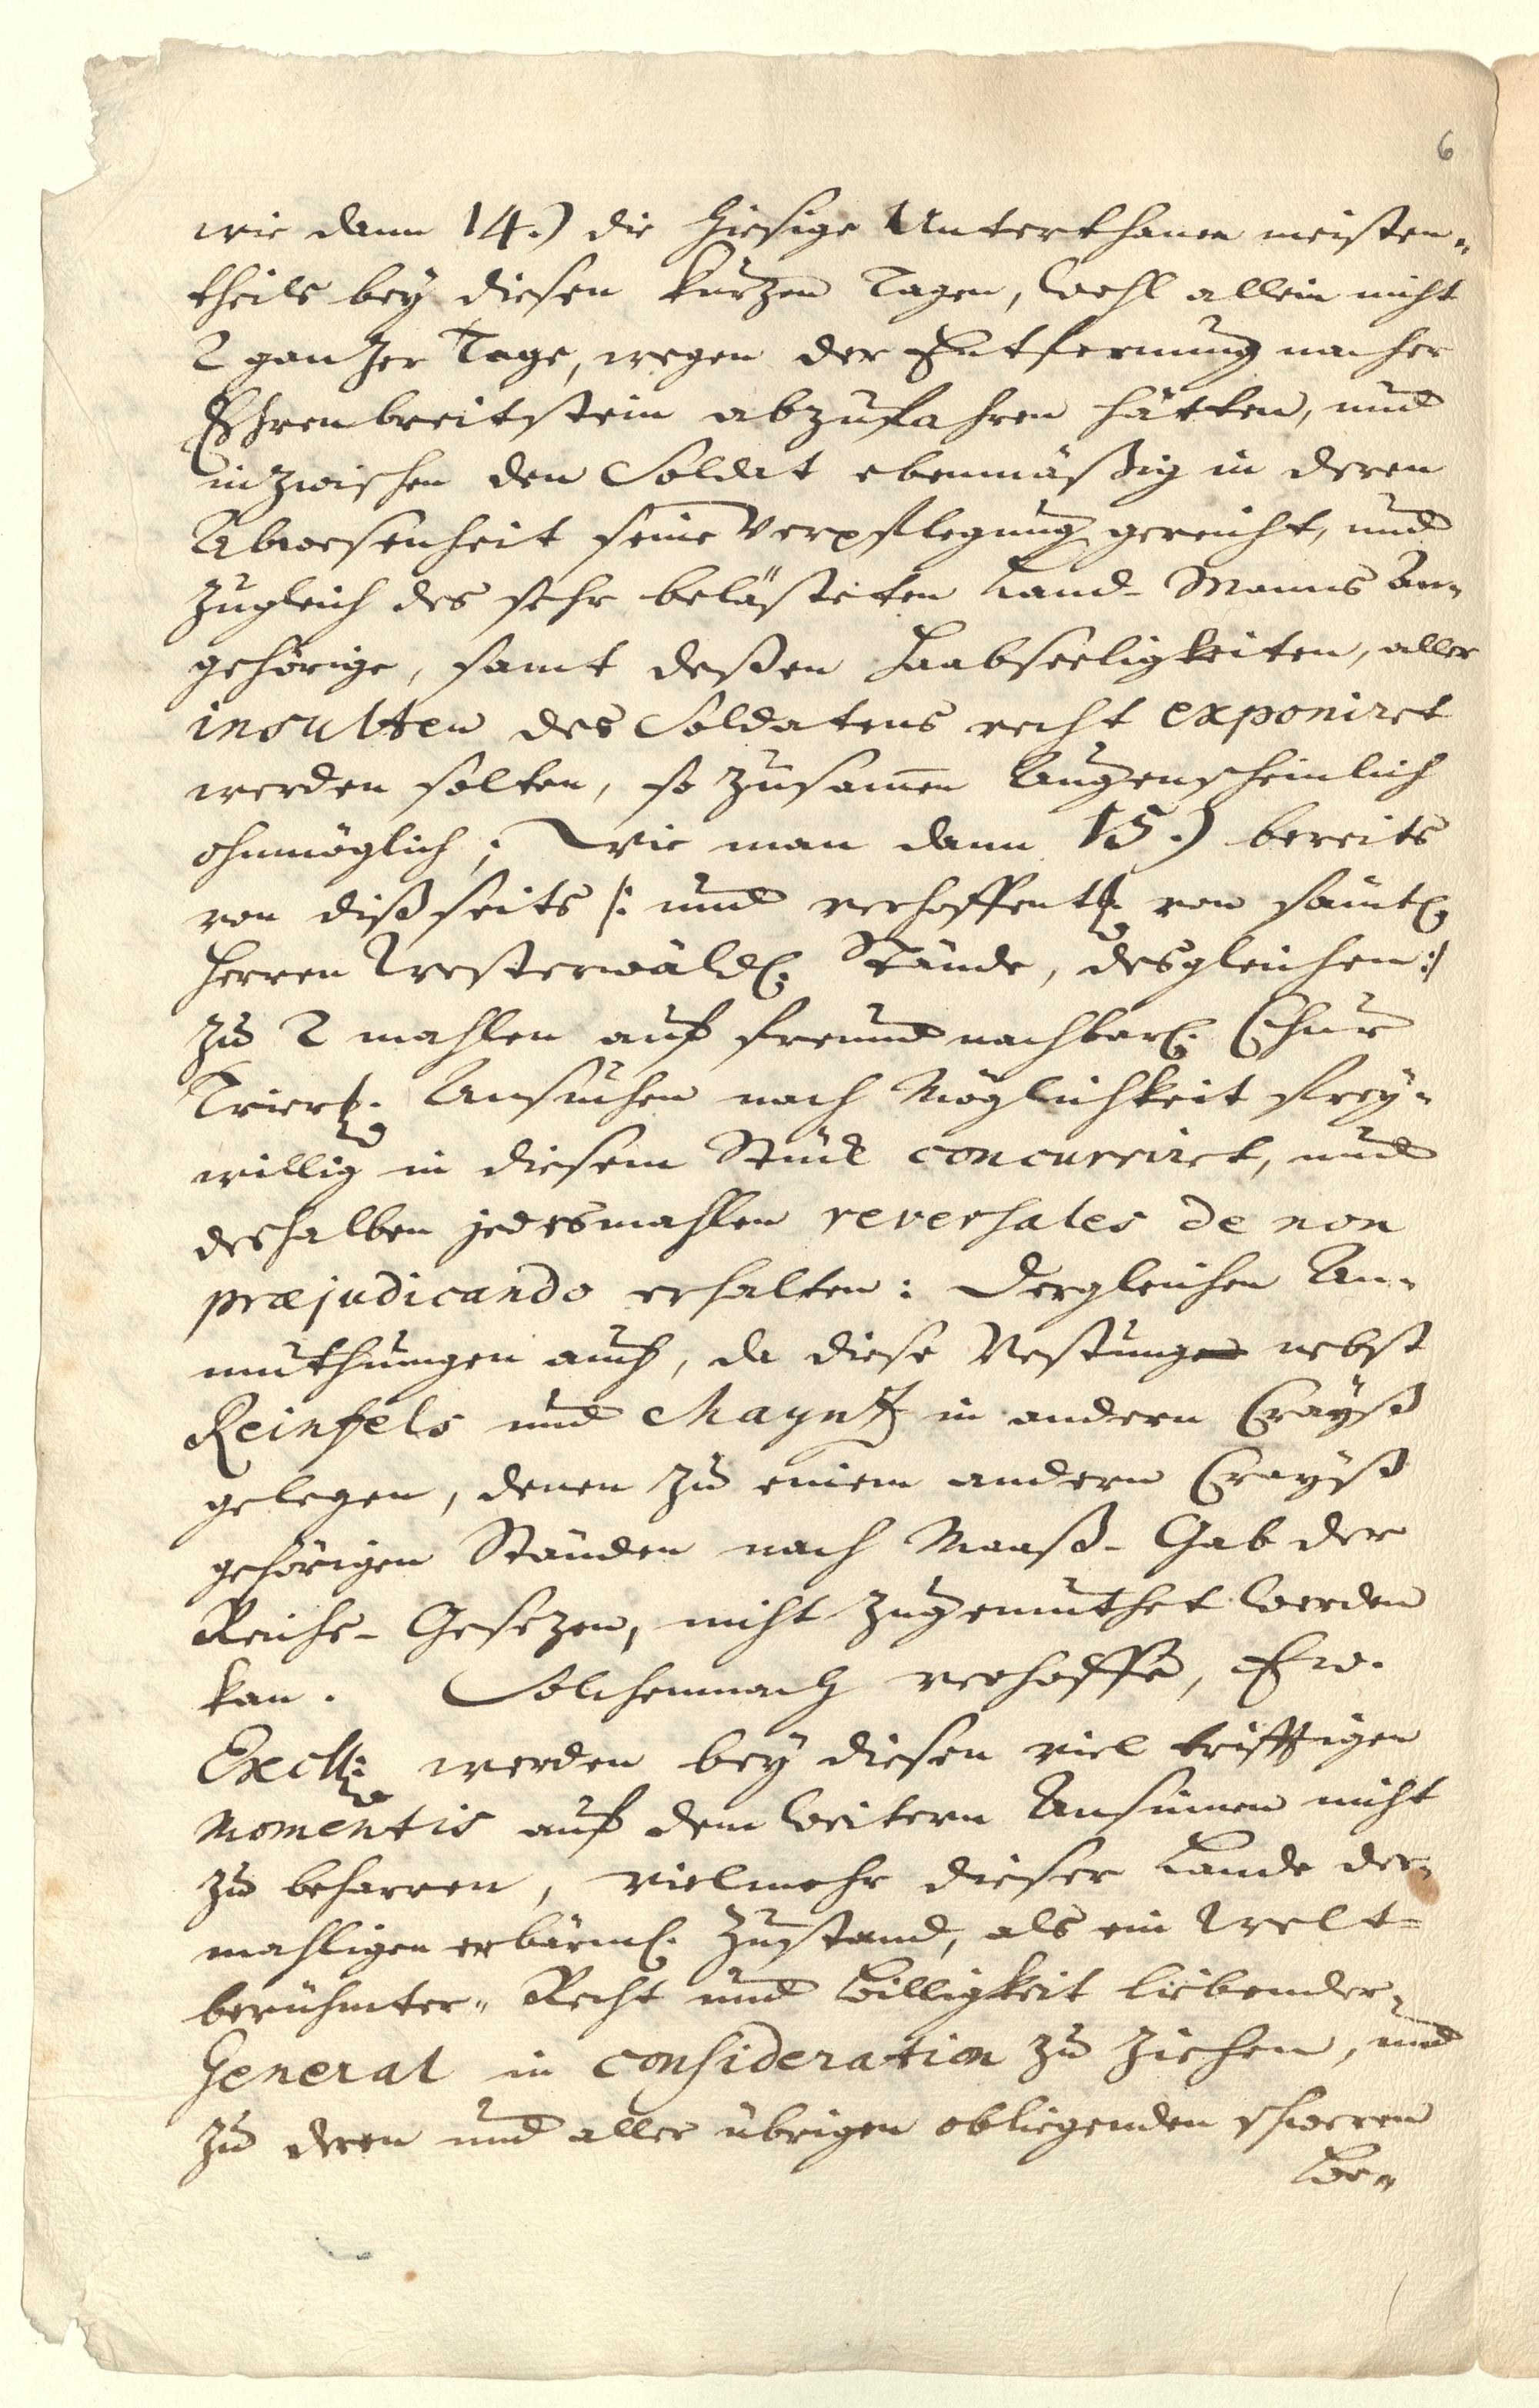 6
wie dann 14.) die hiesige Unterthanen meisten„
theils bey diesen kurzen Tagen, wohl allein nicht
2 gantzer Tage, wegen der Entfernung nacher
Ehrenbreitstein abzufahren hätten, und
inzwischen den Soldat ebenmäßig in deren
Abwesenheit seine Verpflegung gereicht, und
zugleich des sehr belästeten Land-Manns An„
gehörige, samt deßen Haabseeligkeiten, aller
insulten des Soldatens recht exponiret
werden solten, so zusamen Augenscheinlich
ohnmöglich; Wie man dann 15.) bereits
von dißseits /: und verhoffentl. von sämtl.
Herren Westerwäldl. Stände, desgleichen :/
zu 2 mahlen auf freundnachbarl. Chur
Trierl. Ansuchen nach Möglichkeit frey„
willig in diesem Stück concurriret, und
deshalben jedesmahlen reversales de non
præjudicando erhalten: dergleichen An„
muthungen auch, da diese Vestung nebst
Reinfels und Mayntz in andern Crayß
gelegen, denen zu einem andern Crayß
gehörigen Ständen nach Maaß-Gab der
Reichs-Gesezen, nicht zugemuthet werden
kan. Solchemnach verhoffe, Ew.
Excell: werden bey diesen viel trifftigen
Momentis auf dem weitern Ansinnen nicht
zu beharren, vielmehr dieser Lande der„
mahligen erbärml. Zustand, als ein Welt„
berühmter„ Recht und Billigkeit liebender„
General in consideration zu ziehen, und
zu deren und aller übrigen obliegenden schweren
Be„